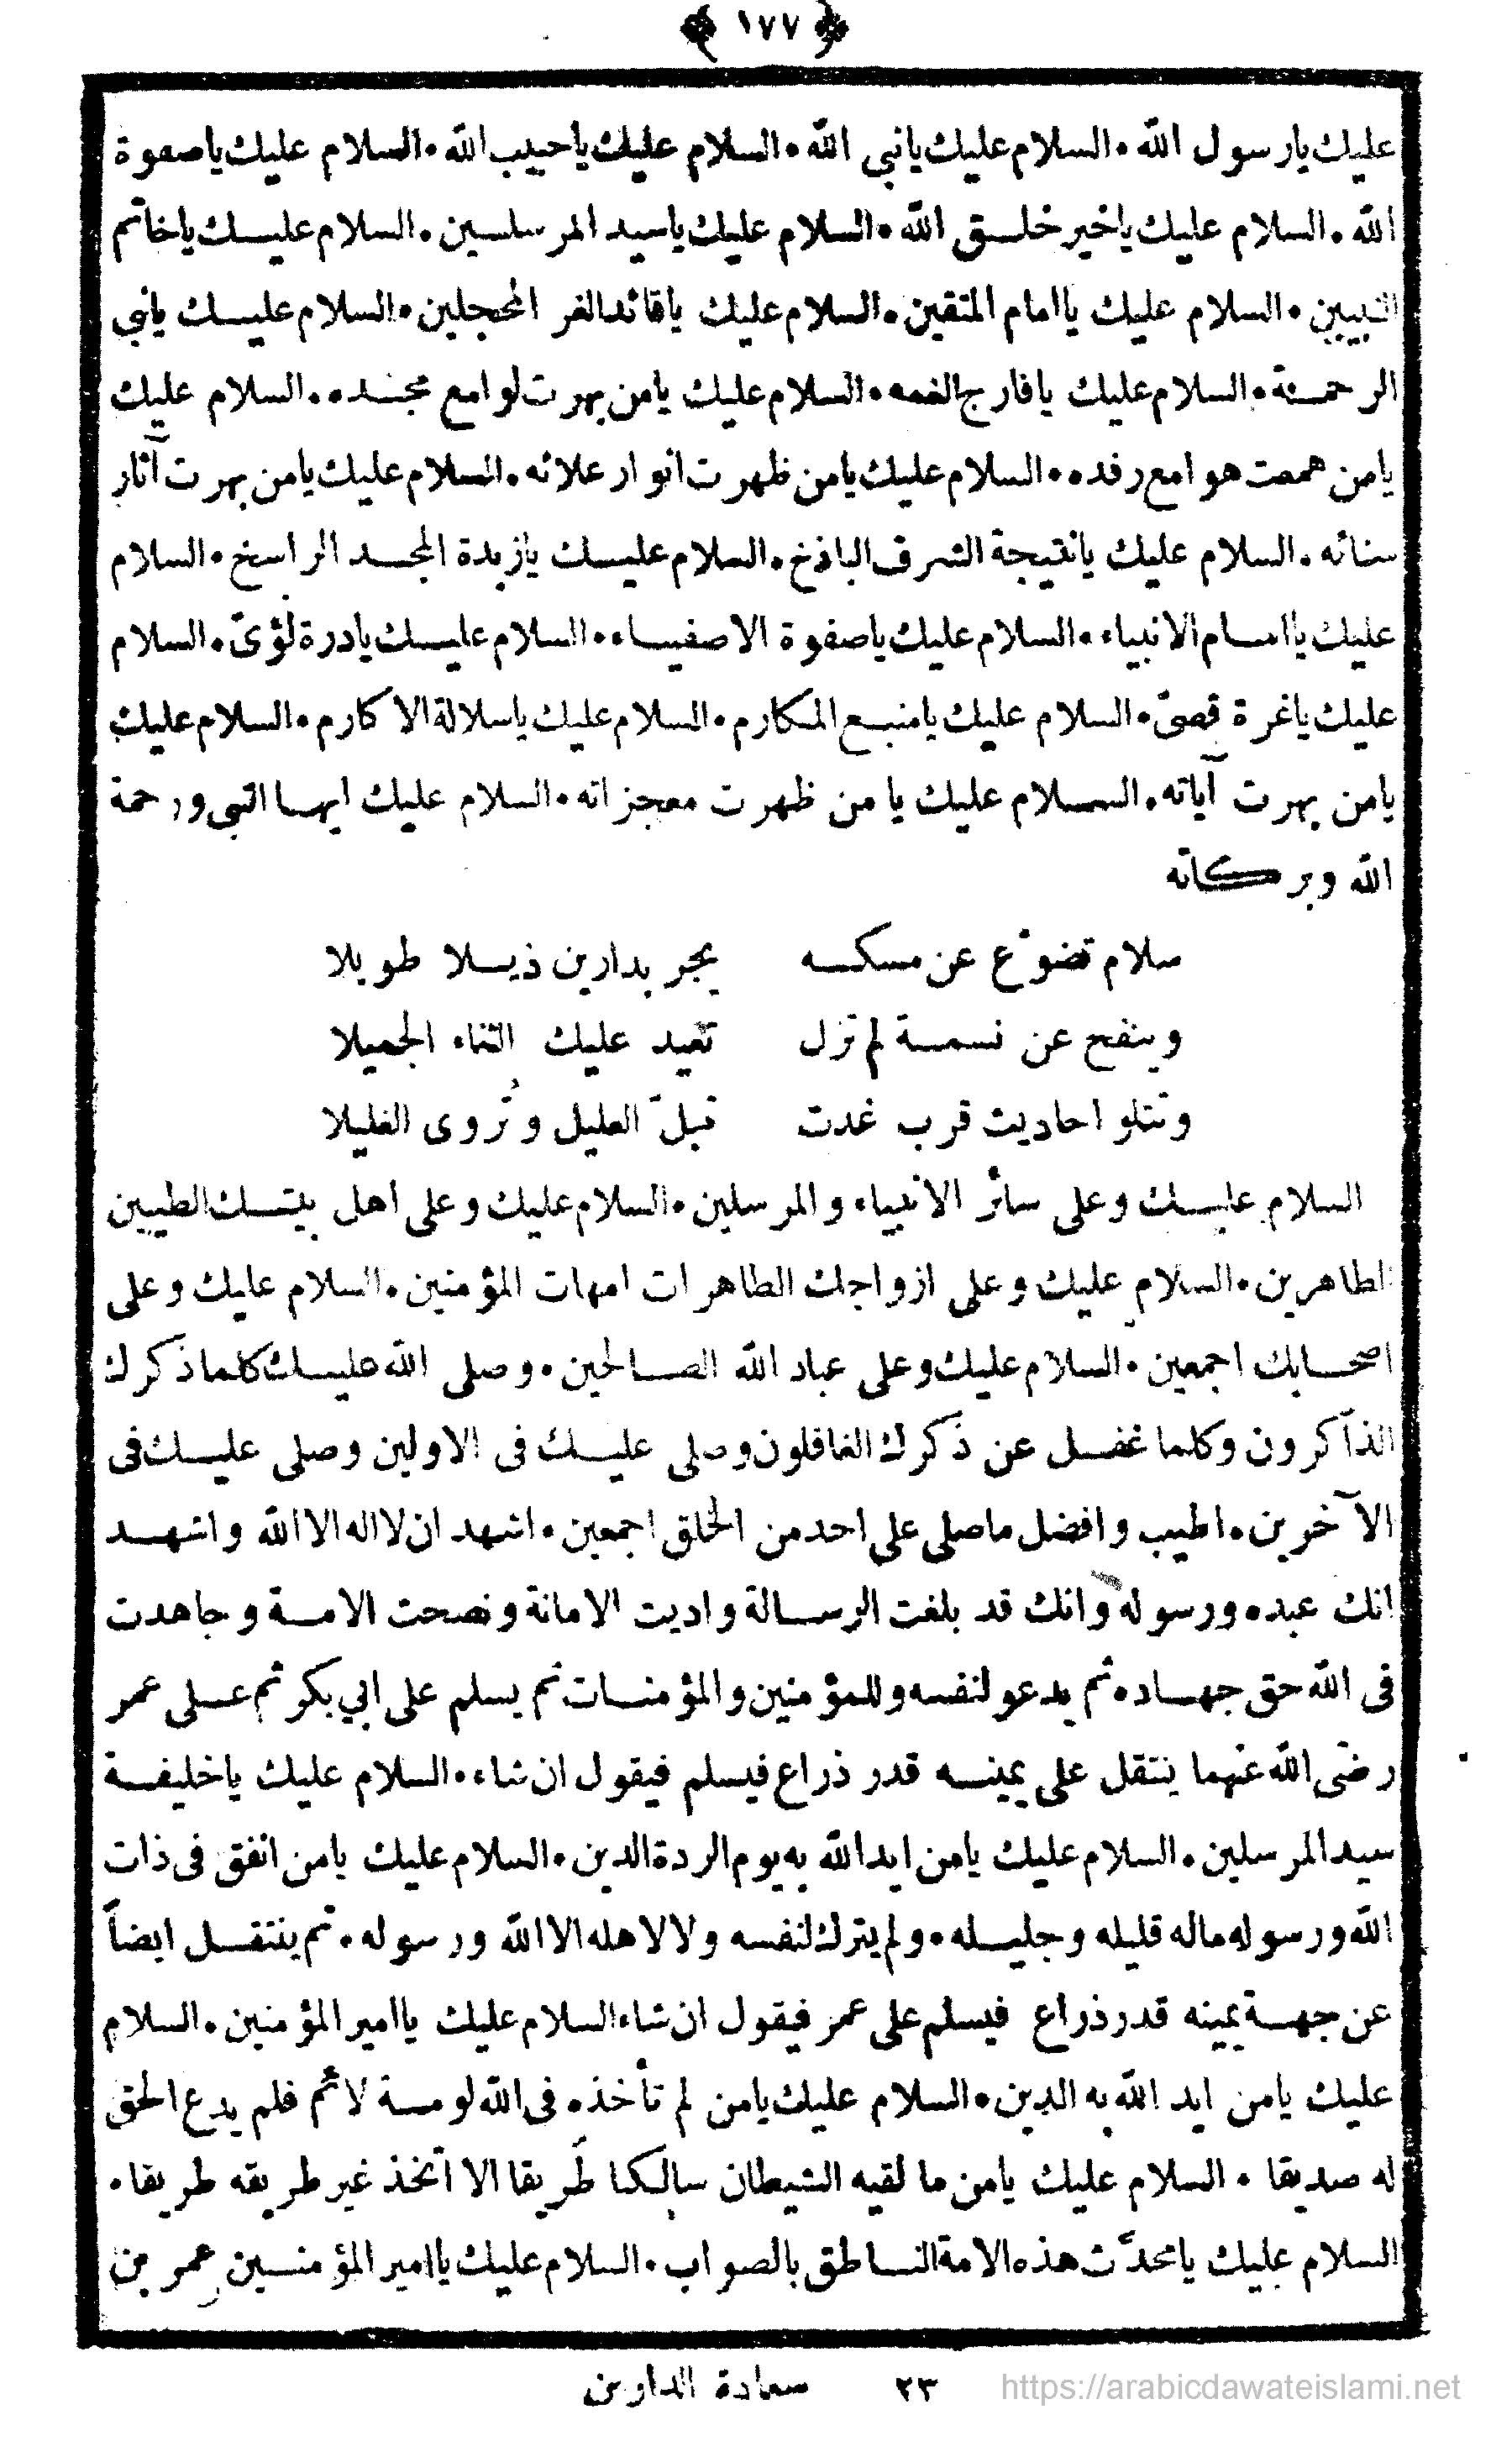 ﴿ ١٧٧ ﴾
عليك يارسول الله • السلام عليك يانبى الله • السلام عليك ياحبيب الله • السلام عليك ياصفوة
الله • السلام عليك ياخير خلق الله • السلام عليك ياسيد المرسلين • السلام عليك ياخاتم
النبيين • السلام عليك ياامام المتقين • السلام عليك ياقائد الغر المحجلين • السلام عليك يانبى
الرحمة • السلام عليك يافارج الغمه • السلام عليك يامن بهرت لوامع مجده • السلام عليك
يامن همعت هوامع رفده • السلام عليك يامن ظهرت انوار علائه • السلام عليك يامن بهرت آثار
سنائه • السلام عليك يانتيجة الشرف الباذخ • السلام عليك يازبدة المجد الراسخ • السلام
عليك ياامام الانبياء • السلام عليك ياصفوة الاصفياء • السلام عليك يادرة لؤىّ • السلام
عليك ياغرة قصىّ • السلام عليك يامنبع المكارم • السلام عليك ياسلالة الاكارم • السلام عليك
يامن بهرت آياته • السلام عليك يامن ظهرت معجزاته • السلام عليك ايها النبى ورحمة
الله وبركاته
سلام تضوّع عن مسكه يجر بدارين ذيلا طويلا
وينفح عن نسمة لم تزل تعيد عليك الثناء الجميلا
وتتلو احاديث قرب غدت تبلّ العليل وتُروى الغليلا
السلام عليك وعلى سائر الانبياء والمرسلين • السلام عليك وعلى اهل بيتك الطيبين
الطاهرين • السلام عليك وعلى ازواجك الطاهرات امهات المؤمنين • السلام عليك وعلى
اصحابك اجمعين • السلام عليك وعلى عباد الله الصالحين • وصلى الله عليك كلما ذكرك
الذاكرون وكلما غفل عن ذكرك الغافلون وصلى عليك فى الاولين وصلى عليك فى
الآخرين • اطيب وافضل ماصلى على احد من الخلق اجمعين • اشهد ان لااله الاالله واشهد
انك عبده ورسوله وانك قد بلغت الرسالة واديت الامانة ونصحت الامة وجاهدت
فى الله حق جهاده ثم يدعو لنفسه وللمؤمنين والمؤمنات ثم يسلم على ابي بكر ثم على عمر
رضى الله عنهما ينتقل على يمينه قدر ذراع فيسلم فيقول ان شاء • السلام عليك ياخليفة
سيد المرسلين • السلام عليك يامن ايد الله به يوم الردة الدين • السلام عليك يامن انفق فى ذات
الله ورسوله ماله قليله وجليله • ولم يترك لنفسه ولا لاهله الا الله ورسوله • ثم ينتقل ايضاً
عن جهة يمينه قدر ذراع فيسلم على عمر فيقول ان شاء السلام عليك ياامير المؤمنين • السلام
عليك يامن ايد الله به الدين • السلام عليك يامن لم تأخذه فى الله لومة لائم فلم يدع الحق
له صديقا • السلام عليك يامن ما لقيه الشيطان سالكا طريقا الا اتخذ غير طريقه طريقا •
السلام عليك يامحدّث هذه الامة الناطق بالصواب • السلام عليك ياامير المؤمنين عمر بن
٢٣ سعادة الدارين
https://arabicdawateislami.net